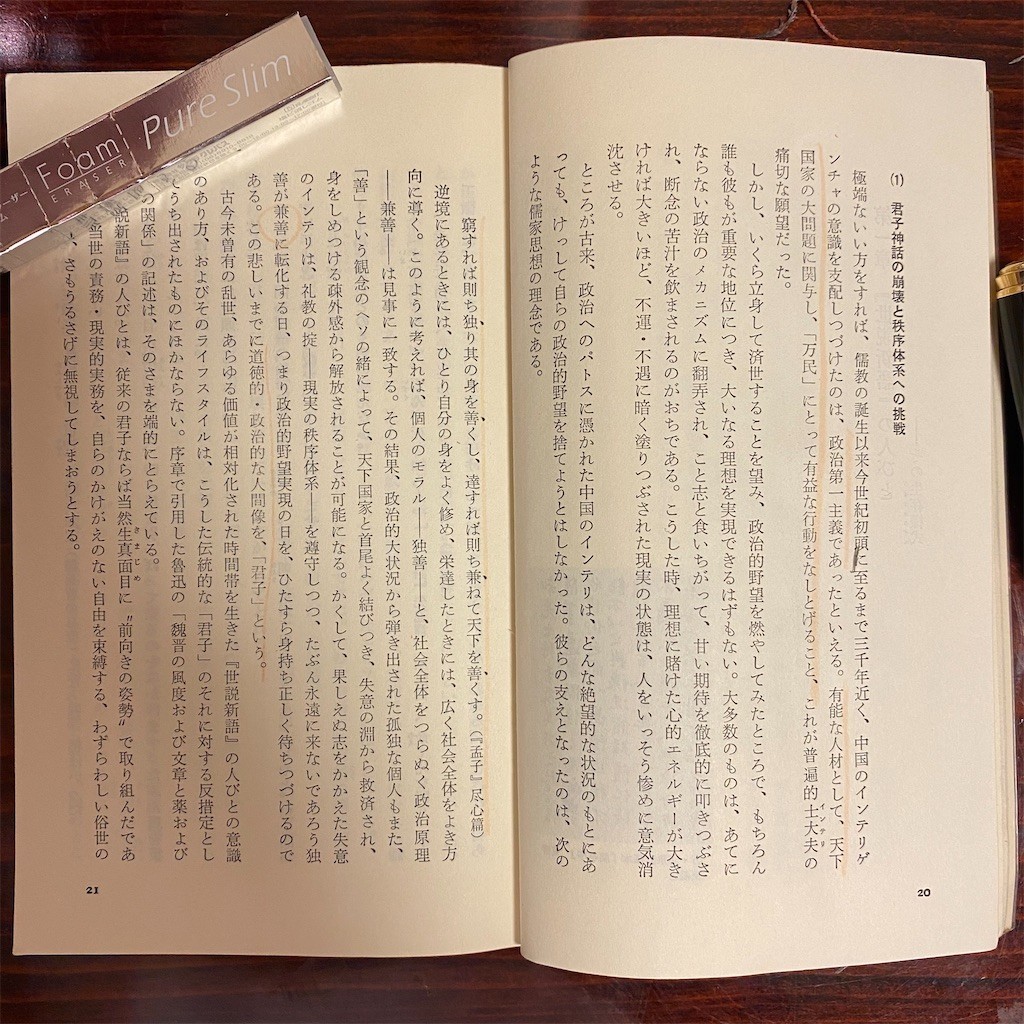 (1) 君子神話の崩壊と秩序体系への挑戦
極端ないい方をすれば、儒教の誕生以来今世紀初頭に至るまで三千年近く、中国のインテリゲ
ンチャの意識を支配しつづけたのは、政治第一主義であったといえる。有能な人材として、天下
国家の大問題に関与し、「万民」にとって有益な行動をなしとげること、これが普遍的士大夫の
インテリ
痛切な願望だった。
しかし、いくら立身して済世することを望み、政治的野望を燃やしてみたところで、もちろん
誰も彼もが重要な地位につき、大いなる理想を実現できるはずもない。大多数のものは、あてに
ならない政治のメカニズムに翻弄され、こと志と食いちがって、甘い期待を徹底的に叩きつぶさ
れ、断念の苦汁を飲まされるのがおちである。こうした時、理想に賭けた心的エネルギーが大き
ければ大きいほど、不運・不遇に暗く塗りつぶされた現実の状態は、人をいっそう惨めに意気消
沈させる。
ところが古来、政治へのパトスに憑かれた中国のインテリは、どんな絶望的な状況のもとにあ
っても、けっして自らの政治的野望を捨てようとはしなかった。彼らの支えとなったのは、次の
ような儒家思想の理念である。
20
窮すれば則ち独り其の身を善くし、達すれば則ち兼ねて天下を善くす。(『孟子』尽心篇)
逆境にあるときには、ひとり自分の身をよく修め、栄達したときには、広く社会全体をよき方
向に導く。このように考えれば、個人のモラル――独善――と、社会全体をつらぬく政治原理
――兼善――は見事に一致する。その結果、政治的大状況から弾き出された孤独な個人もまた、
「善」という観念のヘソの緒によって、天下国家と首尾よく結びつき、失意の淵から救済され、
身をしめつける疎外感から解放されることが可能になる。かくして、果しえぬ志をかかえた失意
のインテリは、礼教の掟――現実の秩序体系――を遵守しつつ、たぶん永遠に来ないであろう独
善が兼善に転化する日、つまり政治的野望実現の日を、ひたすら身持ち正しく待ちつづけるので
ある。この悲しいまでに道徳的・政治的な人間像を、「君子」という。
古今未曽有の乱世、あらゆる価値が相対化された時間帯を生きた『世説新語』の人びとの意識
のあり方、およびそのライフスタイルは、こうした伝統的な「君子」のそれに対する反措定とし
てうち出されたものにほかならない。序章で引用した魯迅の「魏晋の風度および文章と薬および
の関係」の記述は、そのさまを端的にとらえている。
説新語』の人びとは、従来の君子ならば当然生真面目に〝前向きの姿勢〟で取り組んだであ
きまじめ
当世の責務・現実的実務を、自らのかけがえのない自由を束縛する、わずらわしい俗世の
、さもうるさげに無視してしまおうとする。
21
Foam
ERASER
Pure Slim